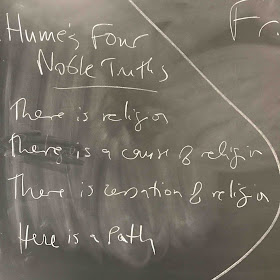 Hume's Four
Noble Truths
Fr
There is religion
There is a cause of religion
There is cessation of religion
Here is a Path